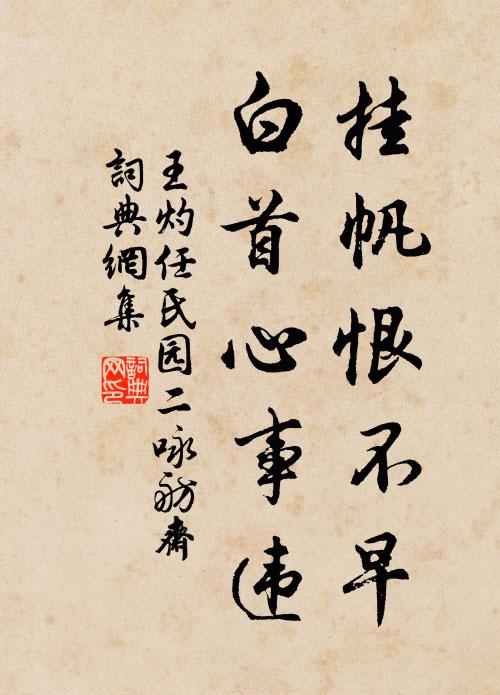 挂帆恨不早
白首心事违
王灼任氏园二咏舫斋
詞典網集
詞典网印